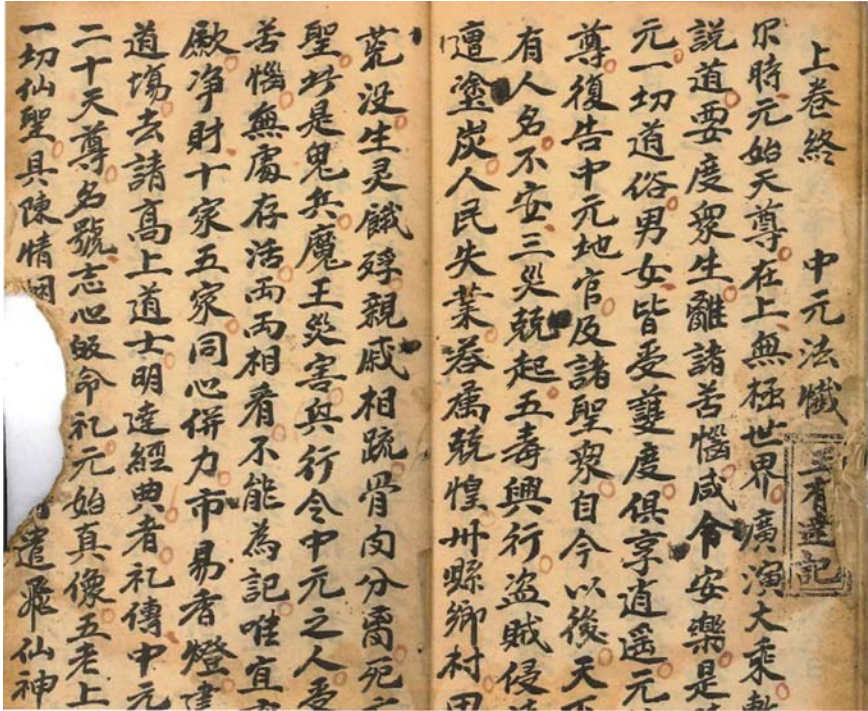 上卷終 中元法懺
尔時元始天尊在上無極世界廣演大乘
說道要度衆生離諸苦惱咸令安樂是
元一切道俗男女皆受䕶度俱享逍遥元
尊復告中元地官及諸聖衆自今以後天
有人名不安三災兢起五毒興行盗賊侵
遭塗炭人民失業苔厲兢惶州縣鄉村田
荒没生灵餓殍親戚相踈骨肉分离死
聖此是鬼兵魔王災害興行令中元之人受
苦惱無處存活両両相看不能為記唯宜
厥净財十家五家同心併力市易香燈
道塲去請髙上道士明達經典者礼傳中元
二十天尊名號志心皈命礼元始真像五老上
一切仙聖具陳情 遣飛仙神